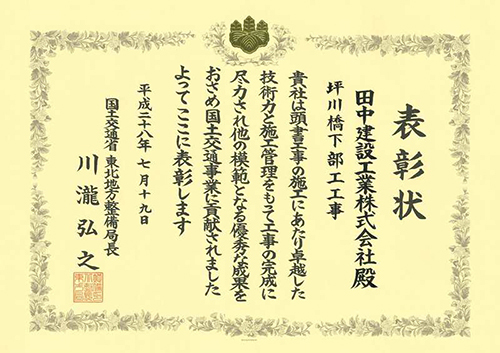 表彰状
田中建設工業株式会社殿
坪川橋下部工工事
貴社は頭書工事の施工にあたり卓越した
技術力と施工管理をもって工事の完成に
尽力され他の模範となる優秀な成果を
おさめ国土交通事業に貢献されました
よってここに表彰します
平成二十八年七月十九日
国土交通省 東北地方整備局長
川瀧弘之